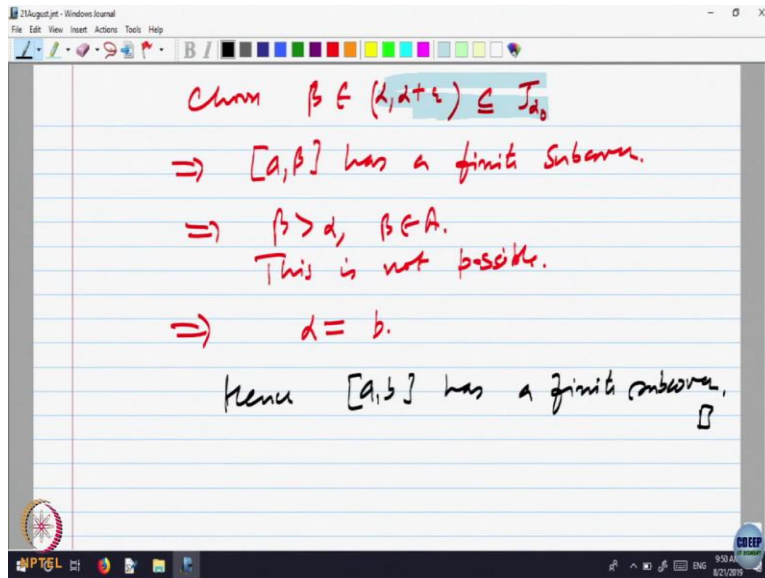 21August.jnt - Windows Journal
File Edit View Insert Actions Tools Help
B I
Choose β ∈ (α, α+ε) ⊆ J_α₀
⇒ [a, β] has a finite subcover.
⇒ β > α, β ∈ A.
This is not possible.
⇒ α = b.
Hence [a, b] has a finite subcover.
NPTEL
CDEEP
IIT BOMBAY
ENG
9:50 A
8/21/2019